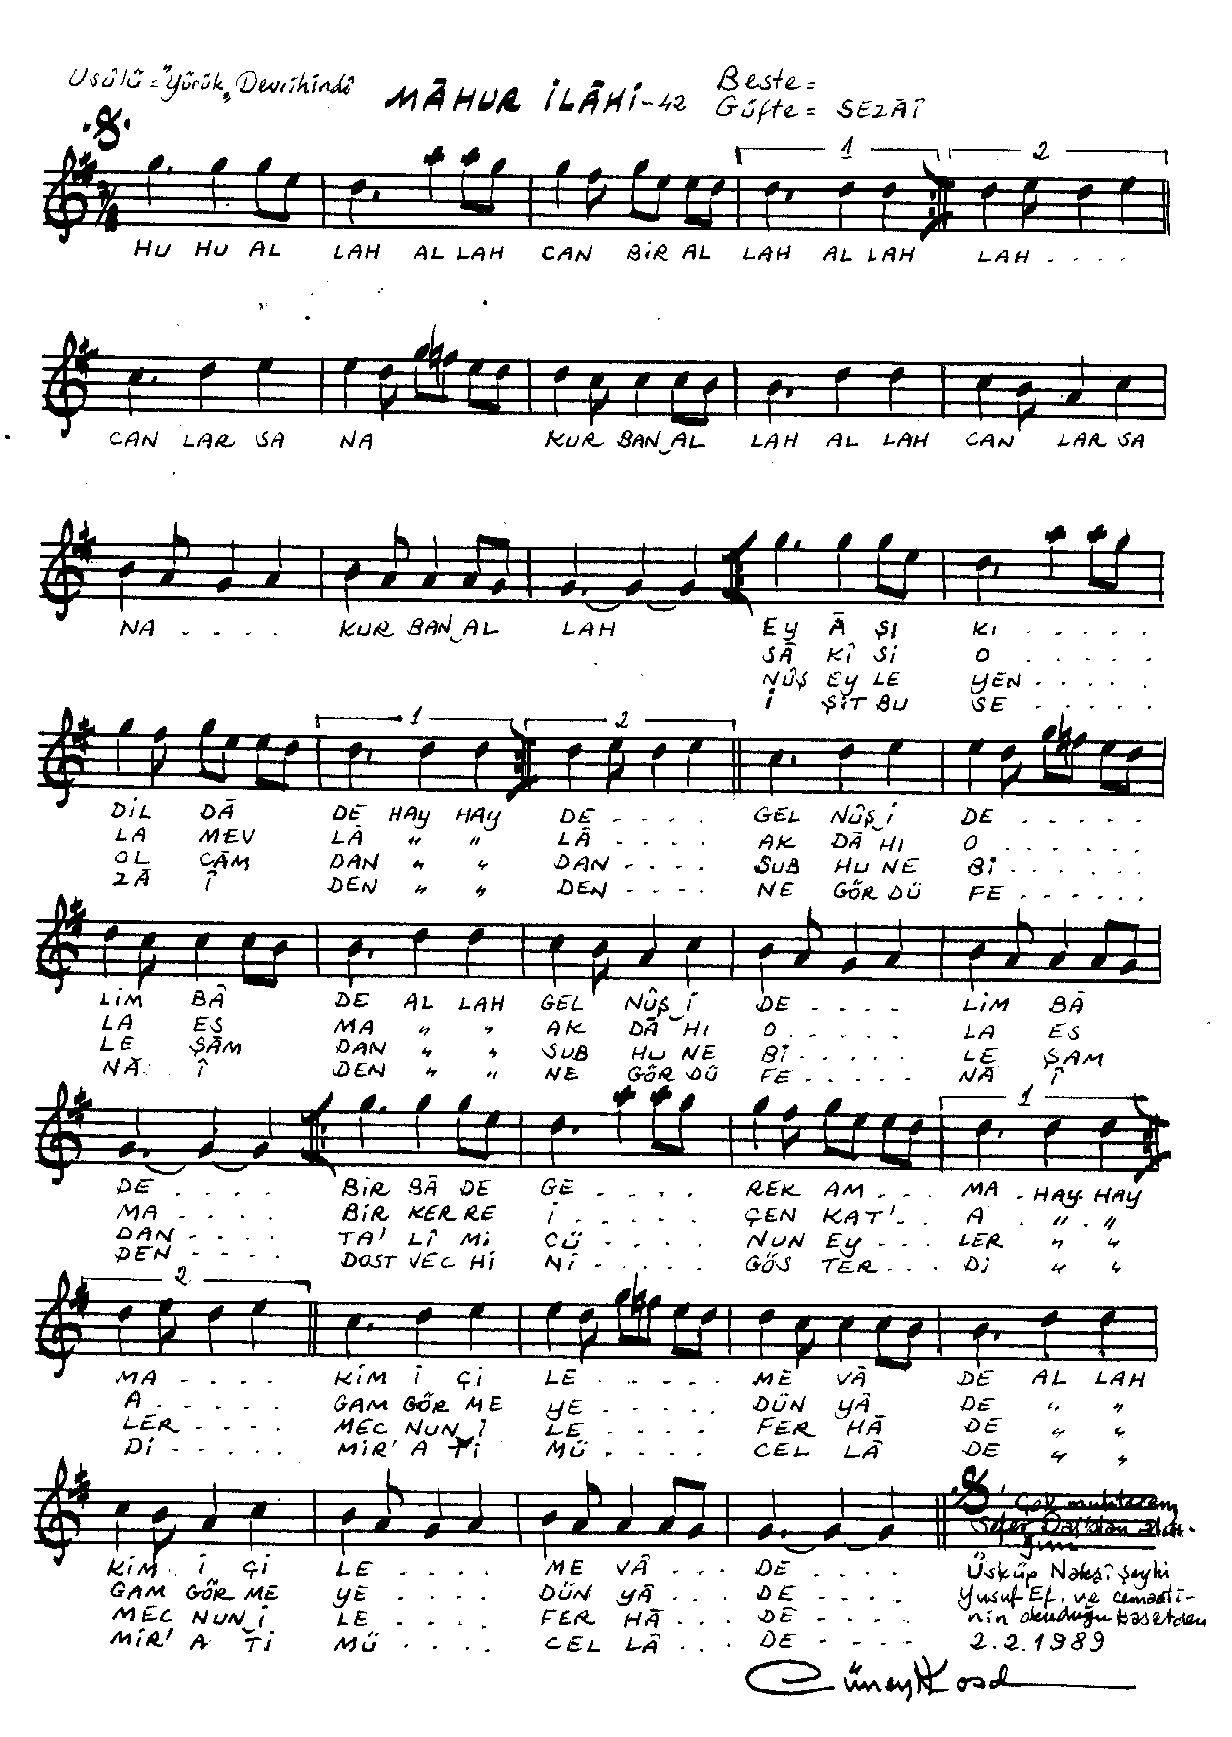 Usûlü = "Yürük" Devrihindî
MÂHUR İLÂHİ - 42
Beste =
Güfte = SEZÂÎ
1 2
HU HU AL LAH AL LAH CAN BİR AL LAH AL LAH LAH . . . .
CAN LAR SA NA KUR BAN AL LAH AL LAH CAN LAR SA
NA . . . . KUR BAN AL LAH EY Â ŞI KI . . . . .
SÂ KÎ Sİ O . . . . .
NÛŞ EY LE YEN . . . . .
İ ŞİT BU SE . . . . .
1 2
DİL DÂ DE HAY HAY DE . . . . GEL NÛŞ İ DE . . . . .
LA MEV LÂ " " LÂ . . . . AK DÂ HI O . . . . .
OL CÂM DAN " " DAN . . . . SUB HU NE Bİ . . . . .
ZÂ Î DEN " " DEN . . . . NE GÖR DÜ FE . . . . .
LİM BÂ DE AL LAH GEL NÛŞ İ DE . . . . LİM BÂ
LA ES MA " " AK DÂ HI O . . . . . LA ES
LE ŞÂM DAN " " SUB HU NE Bİ . . . . . LE ŞAM
NÂ Î DEN " " NE GÖR DÜ FE . . . . . NÂ Î
1
DE . . . . BİR BÂ DE GE . . . . REK AM . . . MA . HAY HAY
MA . . . . BİR KER RE İ . . . . . ÇEN KAT' . . A . " . "
DAN . . . . TA' LÎ Mİ CÜ . . . . . NUN EY . . . LER " "
DEN . . . . DOST VEC Hİ Nİ . . . . . GÖS TER . . . Dİ " "
2
MA . . . . KİM İ Çİ LE . . . . . ME VÂ DE AL LAH
A . . . . . GAM GÖR ME YE . . . . . DÜN YÂ DE " "
LER . . . . MEC NUN İ LE . . . . . FER HÂ DE " "
Dİ . . . . . MİR' A Tİ MÜ . . . . . CEL LÂ DE " "
KİM . İ Çİ LE . . . . ME VÂ . . DE . . . .
GAM GÖR ME YE . . . . DÜN YÂ . . . DE . . . .
MEC NUN İ LE . . . . FER HÂ . . . DE . . . .
MİR' A Tİ MÜ . . . . CEL LÂ . . . DE . . . .
Çok muhterem
Sefer Dal'dan
Üsküp Nakşî Şeyhi
Yusuf Ef. ve cemaati-
nin okuduğu kasetden
2.2.1989
Cüneyt Kosal